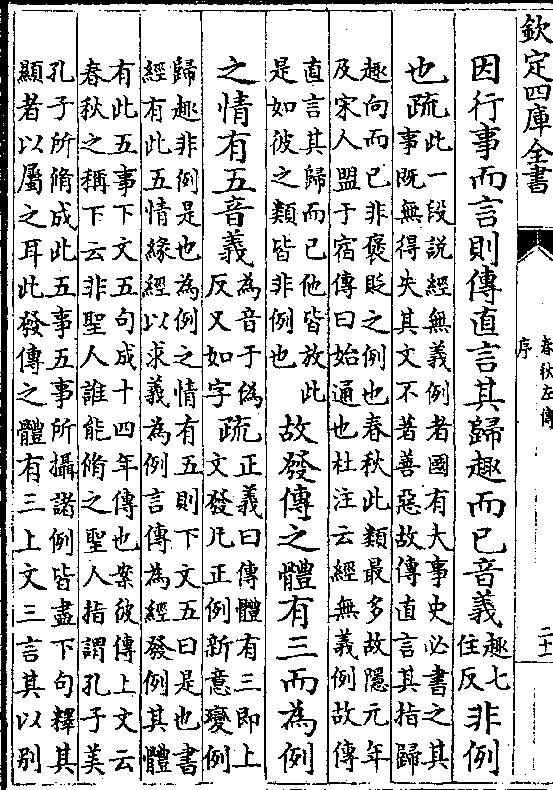 欽定四庫全書
春秋左傳
序
因行事而言則傳直言其歸趣而已音義趣七住反非例
也疏此一段說經無義例者國有大事史必書之其
事既無得失其文不著善惡故傳直言其指歸
趣向而已非褒貶之例也春秋此類最多故隱元年
及宋人盟于宿傳曰始通也杜注云經無義例故傳
直言其歸而已他皆放此
是如彼之類皆非例也故發傳之體有三而為例
之情有五音義為音于偽反又如字疏正義曰傳體有三即上
文發凡正例新意變例
歸趣非例是也為例之情有五則下文五曰是也書
經有此五情緣經以求義為例言傳為經發例其體
有此五事下文五句成十四年傳也案彼傳上文云
春秋之稱下云非聖人誰能脩之聖人指謂孔子美
孔子所脩成此五事五事所攝諸例皆盡下句釋其
顯者以屬之耳此發傳之體有三上文三言其以別